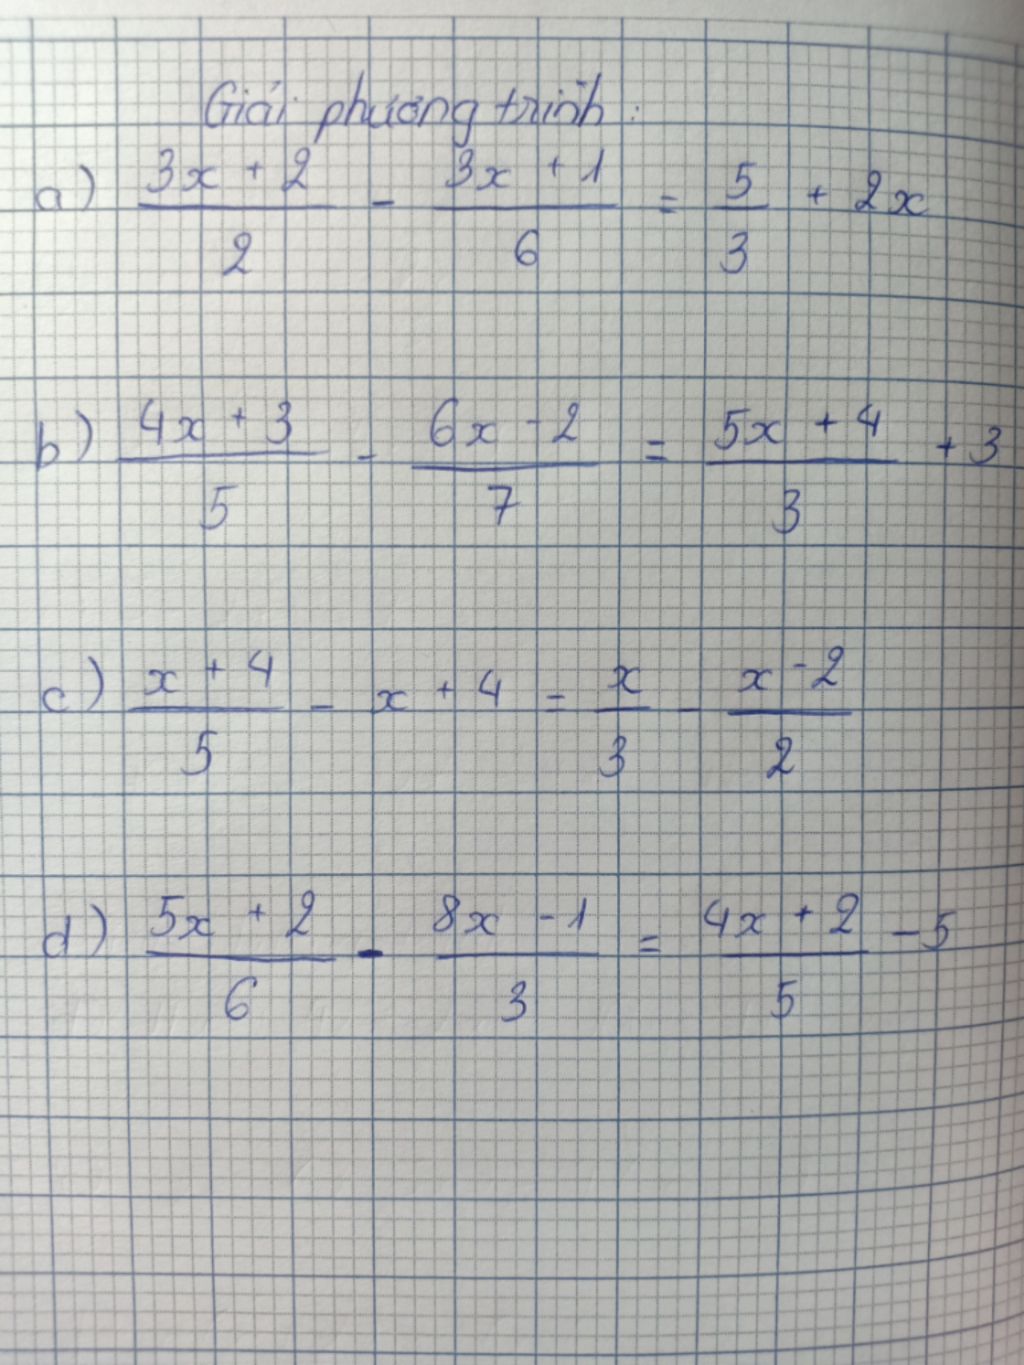 Giải phương trình:
a) (3x + 2)/2 - (3x + 1)/6 = 5/3 + 2x
b) (4x + 3)/5 - (6x - 2)/7 = (5x + 4)/3 + 3
c) (x + 4)/5 - x + 4 = x/3 - (x - 2)/2
d) (5x + 2)/6 - (8x - 1)/3 = (4x + 2)/5 - 5